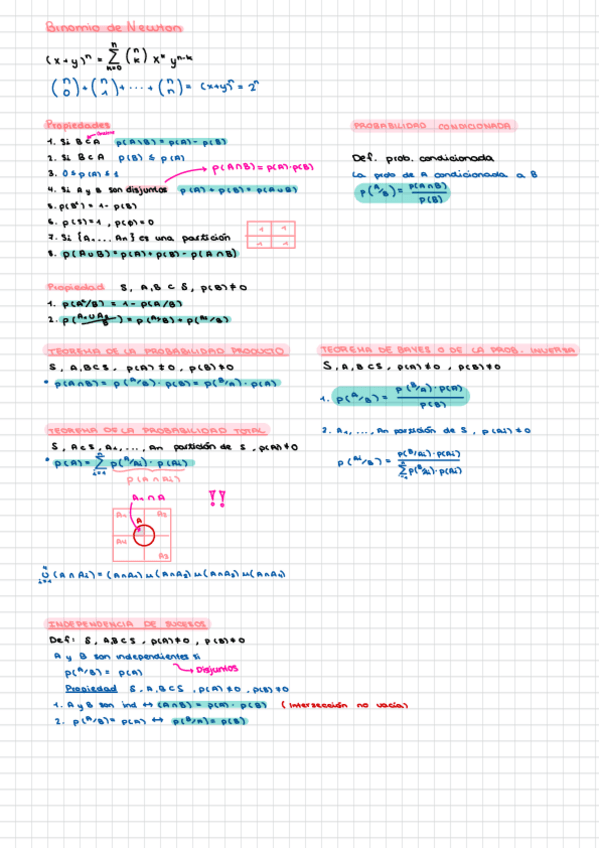 Binomio de Newton
(x+y)^n = Σ_{k=0}^{n} (n k) x^k y^{n-k}
(n 0) + (n 1) + ... + (n n) = (x+y)^n = 2^n
Propiedades
1. Si B⊂A p(A\B) = p(A) - p(B)
2. Si B⊂A p(B) ≤ p(A)
3. 0 ≤ p(A) ≤ 1
p(A∩B) = p(A)·p(B)
4. Si A y B son disjuntos p(A) + p(B) = p(A∪B)
5. p(B^c) = 1 - p(B)
6. p(S) = 1, p(∅) = 0
7. Si {A1, ... An} es una partición
8. p(A∪B) = p(A) + p(B) - p(A∩B)
PROBABILIDAD CONDICIONADA
Def. prob. condicionada
La prob de A condicionada a B
p(A/B) = p(A∩B) / p(B)
Propiedad S, A,B ⊂ S, p(B) ≠ 0
1. p(A^c/B) = 1 - p(A/B)
2. p(A1∪A2/B) = p(A1/B) + p(A2/B)
TEOREMA DE LA PROBABILIDAD PRODUCTO
S, A,B⊂S, p(A) ≠ 0, p(B) ≠ 0
• p(A∩B) = p(A/B) · p(B) = p(B/A) · p(A)
TEOREMA DE BAYES O DE LA PROB. INVERSA
S, A,B⊂S, p(A) ≠ 0, p(B) ≠ 0
1. p(A/B) = p(B/A) · p(A) / p(B)
2. A1, ..., An partición de S, p(A) ≠ 0
p(Ai/B) = p(B/Ai) · p(Ai) / Σ_{i=1}^{n} p(B/Ai) · p(Ai)
TEOREMA DE LA PROBABILIDAD TOTAL
S, A⊂S, A1, ..., An partición de S, p(A) ≠ 0
• p(A) = Σ_{i=1}^{n} p(A/Ai) · p(Ai)
p(A∩Ai)
A1∩A !!
A1 A A2
A4 A3
∪_{i=1}^{n} (A∩Ai) = (A∩A1) ∪ (A∩A2) ∪ (A∩A3) ∪ (A∩A4)
INDEPENDENCIA DE SUCESOS
Def: S, A,B⊂S, p(A) ≠ 0, p(B) ≠ 0
A y B son independientes si
p(A/B) = p(A) → Disjuntos
Propiedad S, A,B⊂S, p(A) ≠ 0, p(B) ≠ 0
1. A y B son ind ↔ (A∩B) = p(A) · p(B) (Intersección no vacía)
2. p(A/B) = p(A) ↔ p(B/A) = p(B)